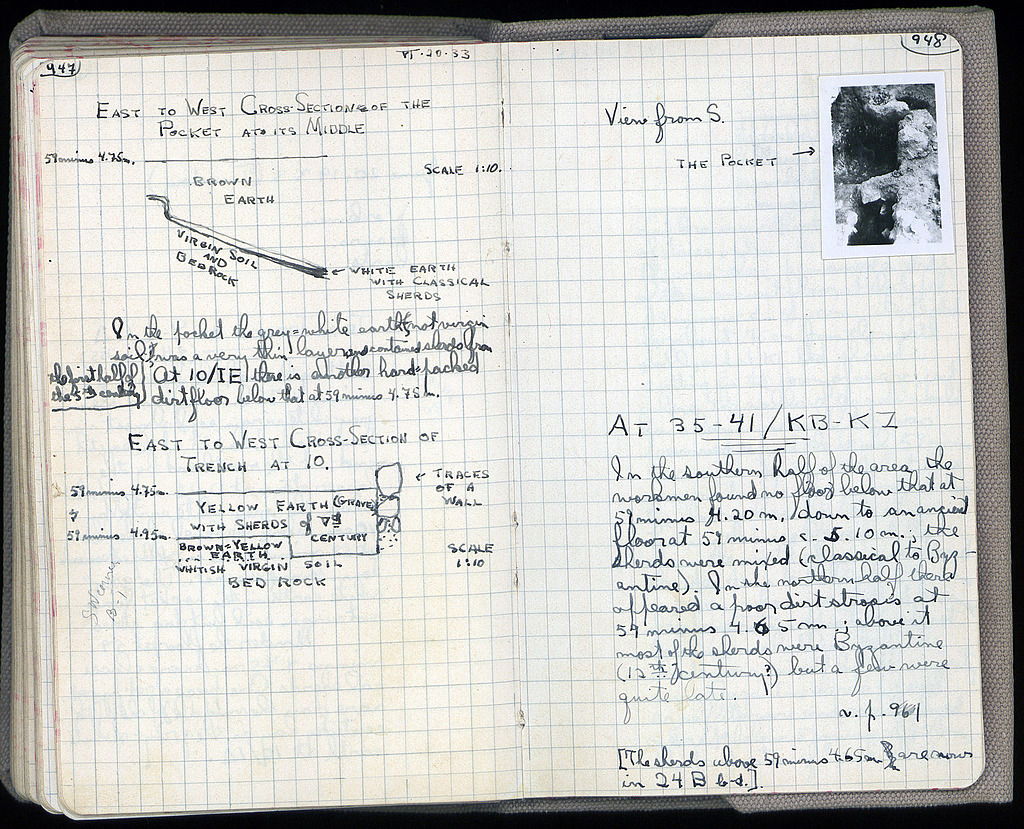 947
VI-20-33
EAST TO WEST CROSS-SECTION OF THE
POCKET AT ITS MIDDLE
59 minus 4.75m.
SCALE 1:10.
BROWN
EARTH
VIRGIN SOIL
AND
BED ROCK
← WHITE EARTH
WITH CLASSICAL
SHERDS
In the pocket the grey-white earth, not virgin
soil, was a very thin layer and contained sherds from
the first half of
the 5th century
At 10/IE there is another hard-packed
dirt floor below that at 59 minus 4.75 m.
EAST TO WEST CROSS-SECTION OF
TRENCH AT 10.
59 minus 4.75m.
59 minus 4.95m.
YELLOW EARTH (GRAVE)
WITH SHERDS of Vth
CENTURY
BROWN-YELLOW
EARTH
WHITISH VIRGIN SOIL
BED ROCK
← TRACES
OF A
WALL
SCALE
1:10
948
View from S.
THE POCKET →
AT 35-41/KB-KZ
In the southern half of the area the
workmen found no floor below that at
59 minus 4.20 m. down to an ancient
floor at 59 minus c. 5.10 m.; the
sherds were mixed (classical to Byz-
antine). In the northern half there
appeared a poor dirt strosis at
59 minus 4.65m.; above it
most of the sherds were Byzantine
(12th century?) but a few were
quite late.
v. p. 961
[The sherds above 59 minus 4.65m are now
in 24 B b-d.]